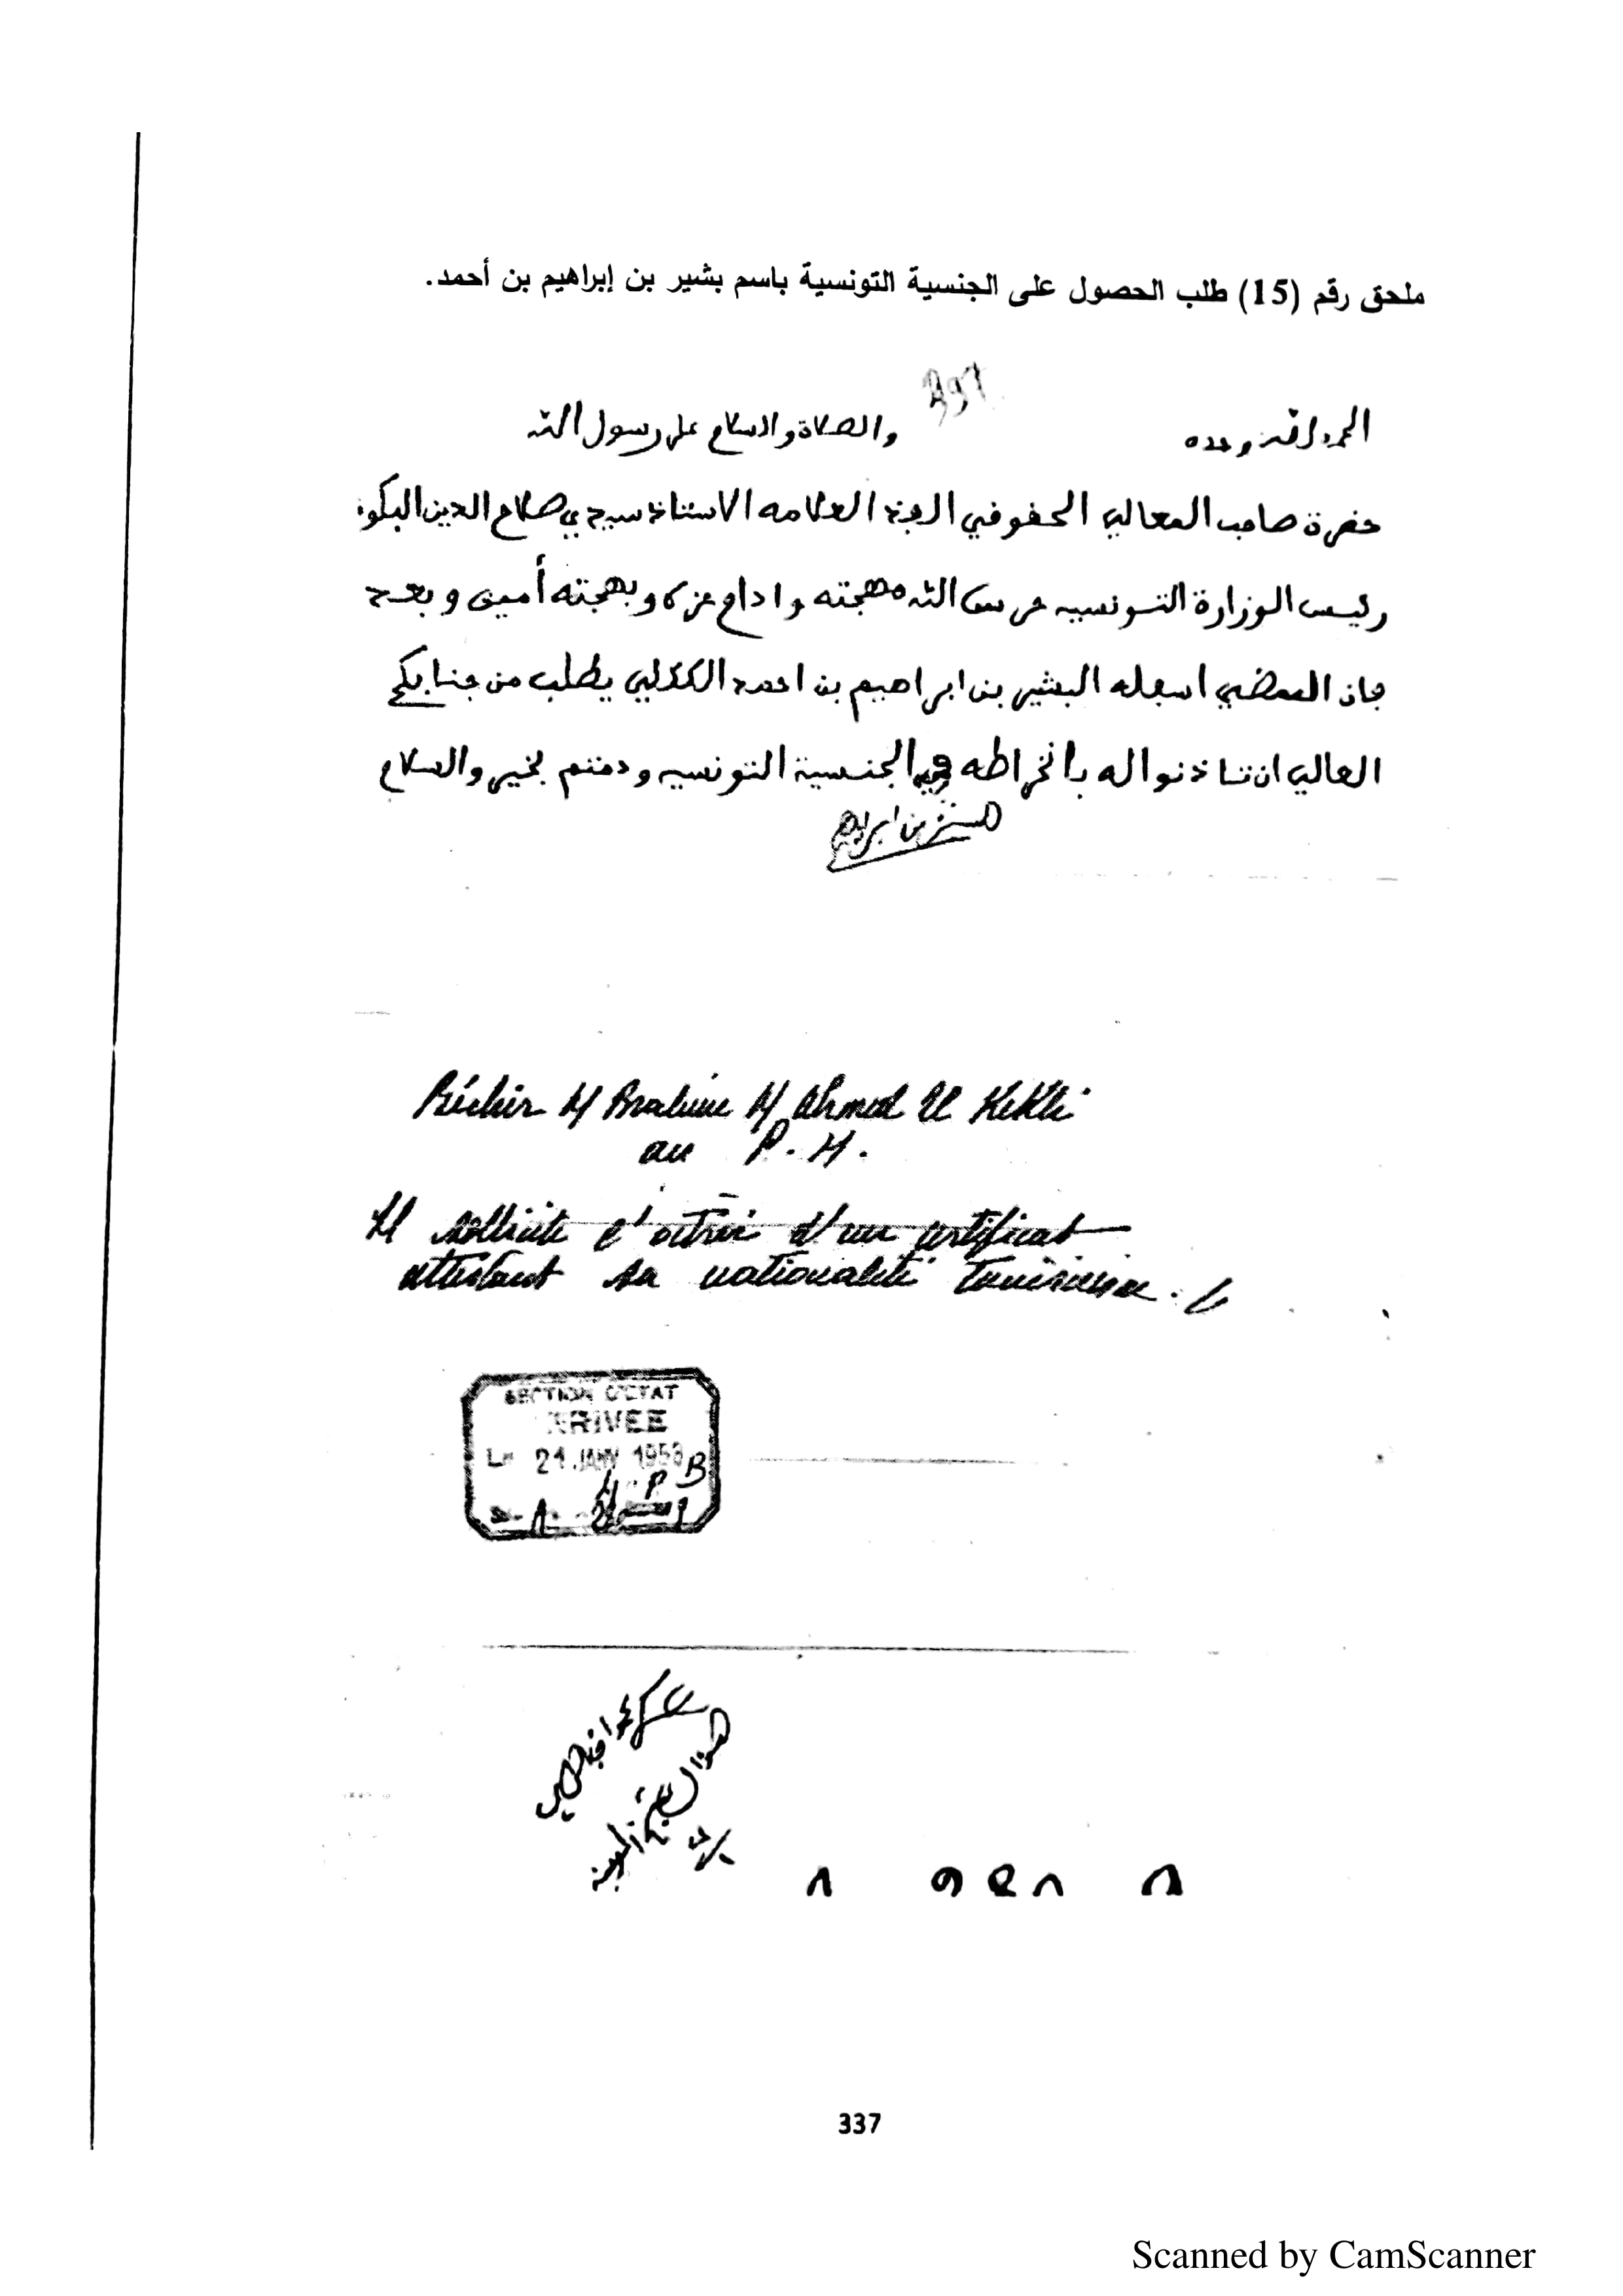 ملحق رقم (15) طلب الحصول على الجنسية التونسية باسم بشير بن إبراهيم بن أحمد.
397
الحمد لله وحده والصلاة والسلام على رسول الله
حضرة صاحب المعالي الحقوقي العلامه الاستاذ سيدي صلاح الدين البكوش
رئيس الوزارة التونسيه حرس الله مهجته وادام عزه وبهجته أمين وبعد
فان الممضي اسفله البشير بن ابراهيم بن احمد الككلي يطلب من جنابكم
العالي ان تاذنوا له بانخراطه في الجنسية التونسيه ودمتم بخير والسلام
البشير بن ابراهيم
Béchir H Brahim H Ahmed El Kekli
au P. H.
Il sollicite l'octroi d'un certificat
attestant sa nationalité tunisienne.
SECTION D'ETAT
ARRIVEE
Le 21 JANV 1953
337
Scanned by CamScanner